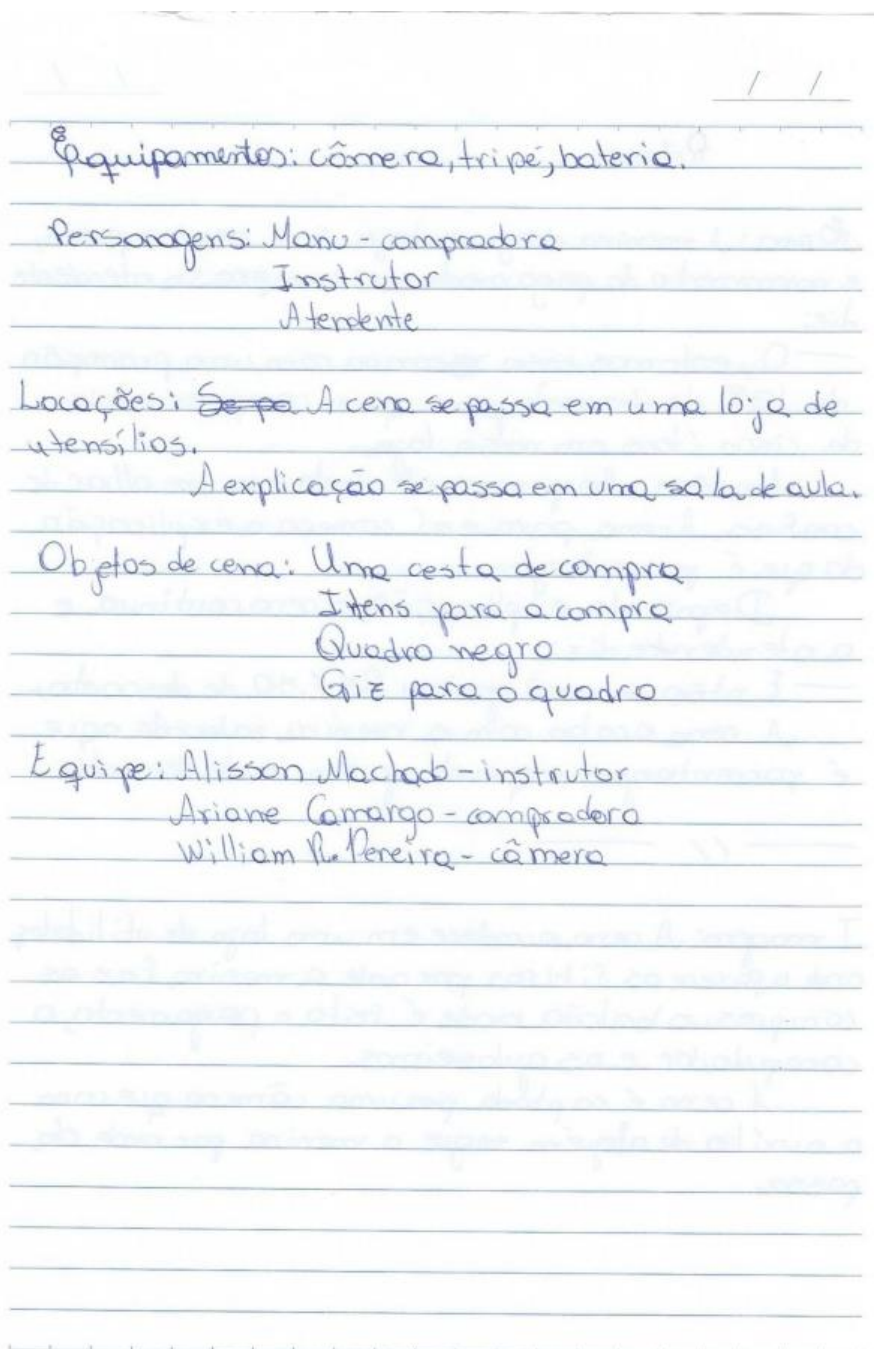 / /
Equipamentos: câmera, tripé, bateria.
Personagens: Manu - compradora
Instrutor
Atendente
Locações: Se pa A cena se passa em uma loja de
utensílios.
A explicação se passa em uma sala de aula.
Objetos de cena: Uma cesta de compra
Itens para a compra
Quadro negro
Giz para o quadro
Equipe: Alisson Machado - instrutor
Ariane Camargo - compradora
William R. Pereira - câmera